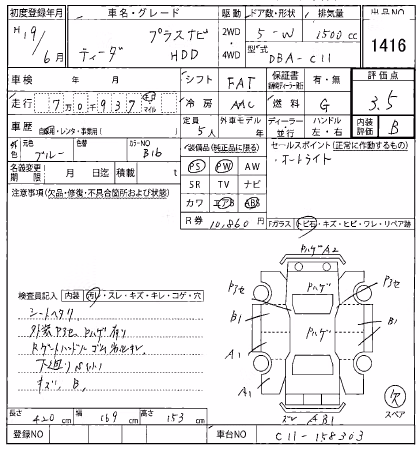 初度登録年月 車名・グレード 駆動 ドア数・形状 排気量 出品NO
H19/6月 ティーダ プラスナビHDD 2WD・4WD 5-W 1500cc 1416
型式 DBA-C11
車検 年 月 シフト FAT 保証書 有・無 評価点
走行 7万0千937 km マイル 冷房 AAC 燃料 G 3.5
車歴 自家用・レンタ・事業用( ) 定員 5人 外車モデル 年 ディーラー・並行 ハンドル 左・右 内装評価 B
色 元色 ブルー 色替 カラーNO B16
装備品(純正品に限る) セールスポイント(正常に作動するもの)
名義変更期限 月 日迄 積載 t
PS PW AW オートライト
注意事項(欠品・修復・不具合箇所および状態)
SR TV ナビ
カワ エアB ABS
R券 10,860円
Fガラス トビ石・キズ・ヒビ・ワレ・リペア跡
検査員記入 内装 汚レ・スレ・キズ・キレ・コゲ・穴
シートヘタリ
外装 Pヨセ Pハゲ 有り
キズ、B,
Pハゲ A2
Pヨセ Pハゲ Pヨセ
B1 Pハゲ B1
A1 A1
A1
スレ AB1
スペア
長さ 420cm 幅 169cm 高さ 153cm
登録NO 車台NO C11-158303